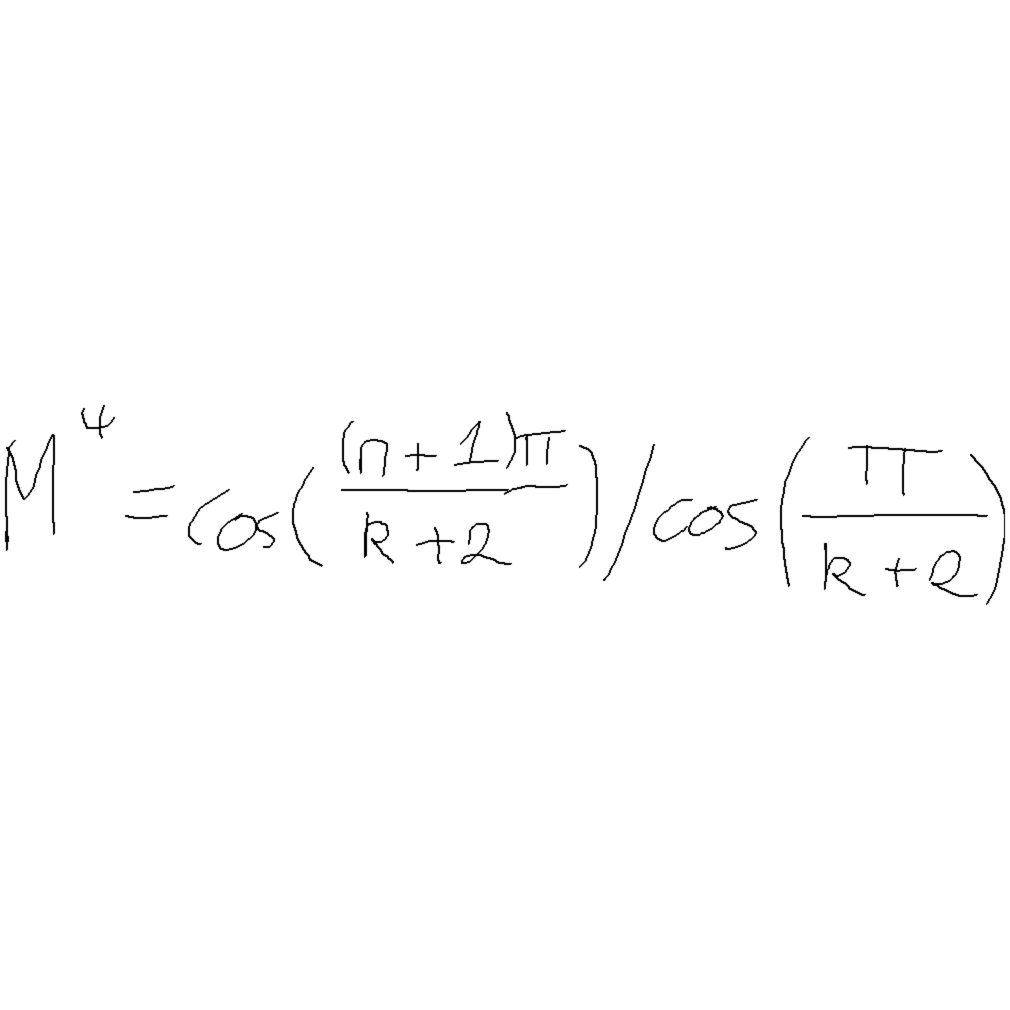 M^4 = cos((n+1)π/(k+2))/cos(π/(k+2))